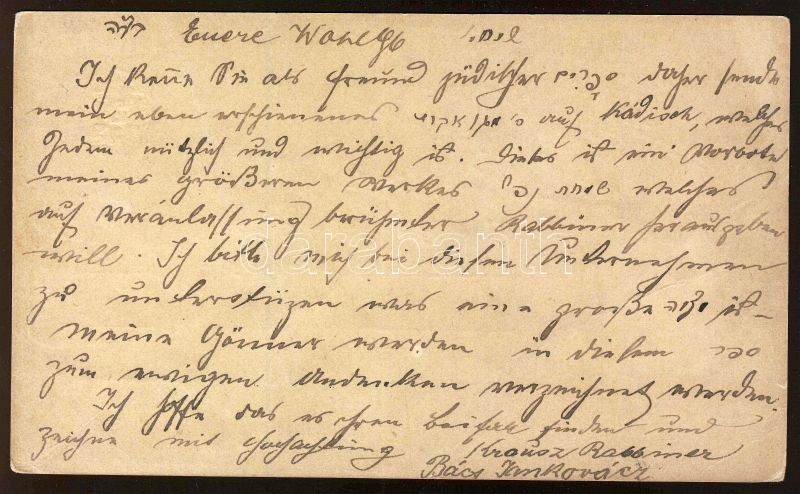 Euere Wohlgb
Ich kenne Sie als Freund jüdischer ספרים daher sende
mein eben erschienenes auf Kádisch, welches
Jedem nützlich und wichtig ist. Dieses ist ein Vorbote
meines größeren Werkes welches
auf Veránlassung berühmter Rabbiner herausgeben
will. Ich bitte mich bei diesem Unternehmen
zu unterstüzen was eine große מצוה ist
meine Gönner werden in diesem ספר
zum ewigen Andenken verzeichnet werden.
Ich hoffe das es ihren beifall finden und
zeichne mit Hochachtung
Krausz Rabbiner
Bács Jankovácz
darabanth